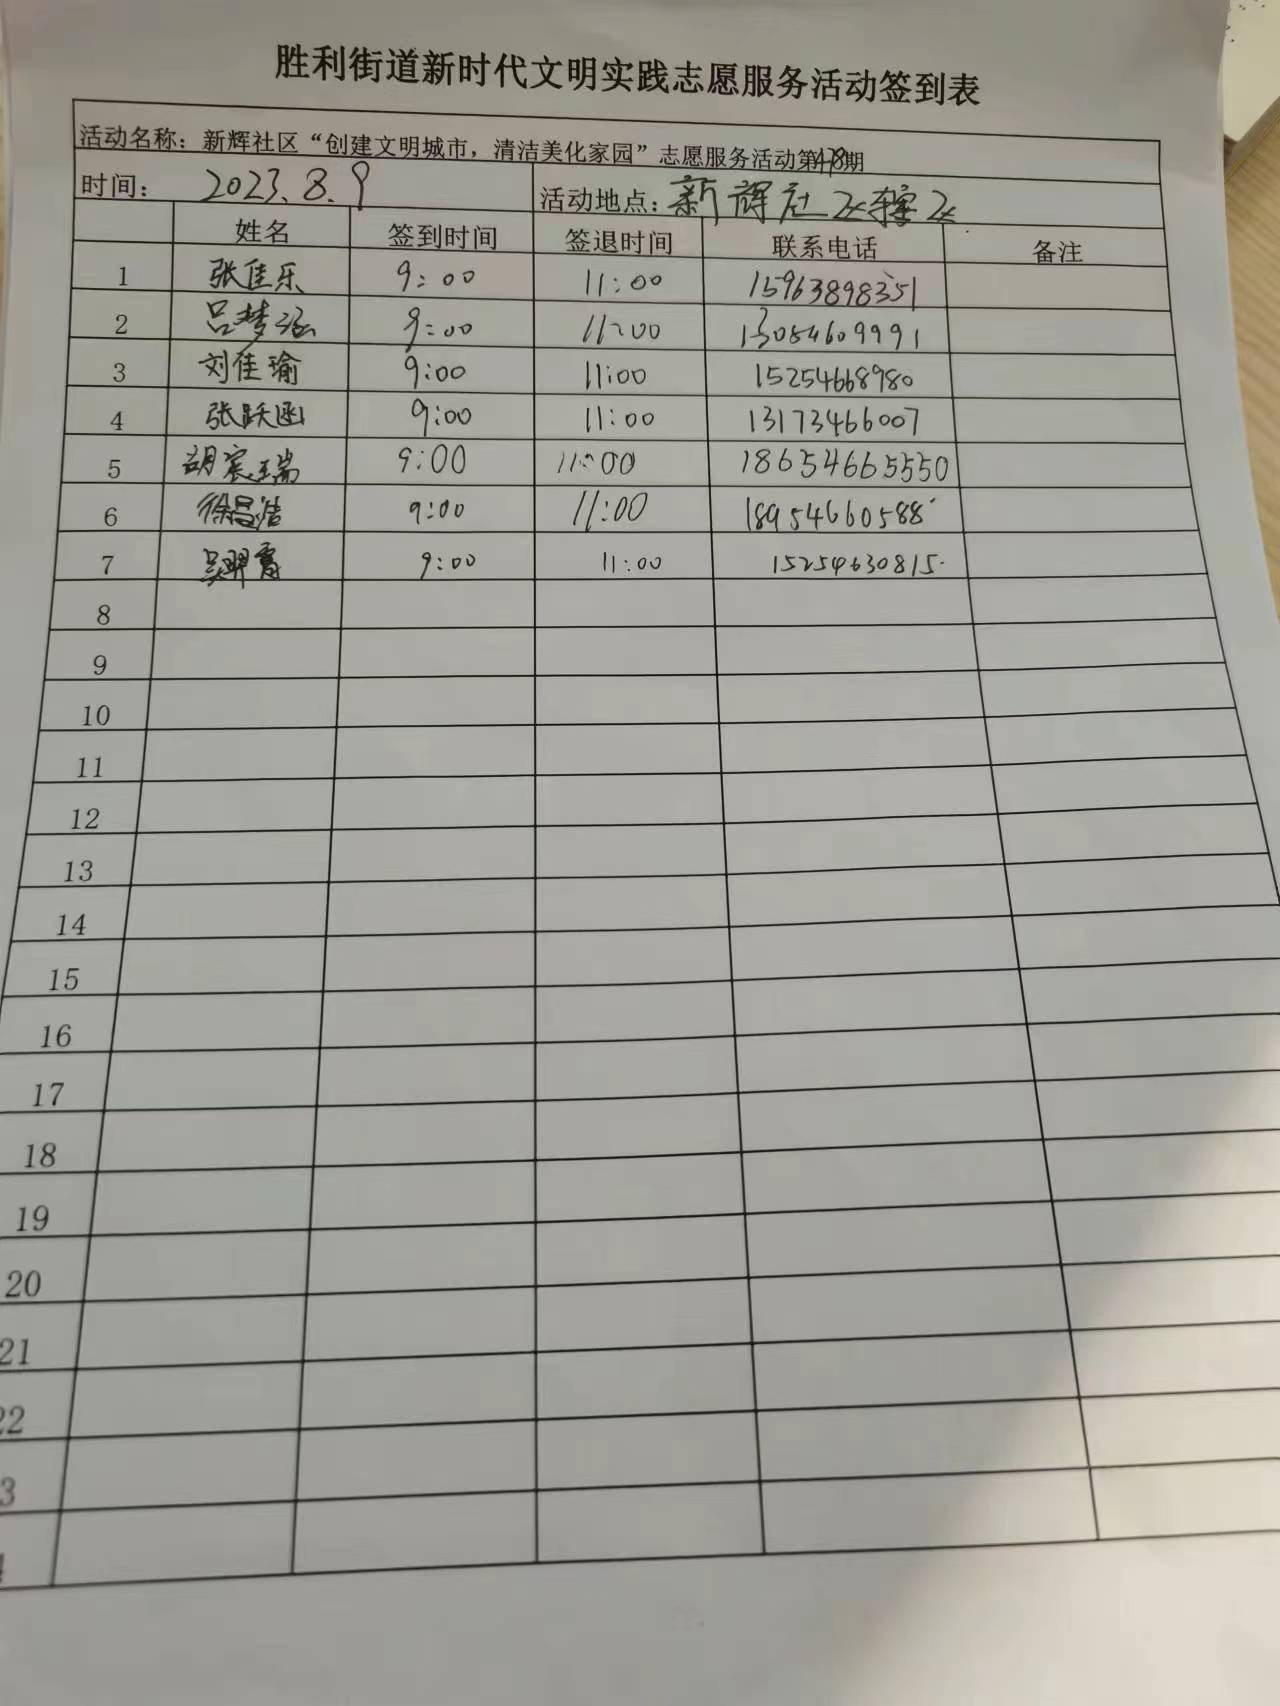 胜利街道新时代文明实践志愿服务活动签到表
活动名称：新辉社区“创建文明城市，清洁美化家园”志愿服务活动第48期
时间： 2023.8.9 活动地点：新辉社区辖区
姓名 签到时间 签退时间 联系电话 备注
1 张佳乐 9:00 11:00 15963898351
2 吕梦涵 9:00 11:00 13054609991
3 刘佳瑜 9:00 11:00 15254668980
4 张跃函 9:00 11:00 13173466007
5 胡宸瑞 9:00 11:00 18654665550
6 徐昌浩 9:00 11:00 18954660588
7 9:00 11:00 15254630815
8
9
10
11
12
13
14
15
16
17
18
19
20
21
22
3
4